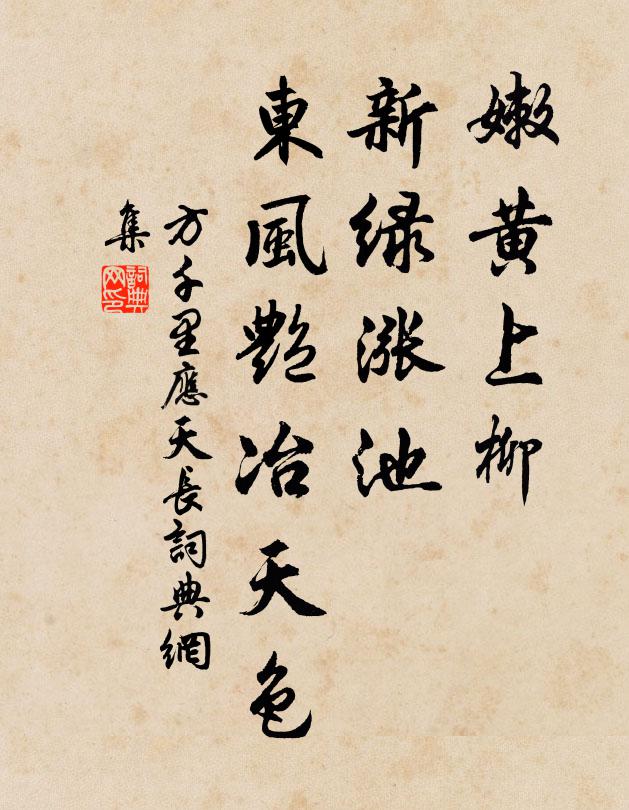 嫩黄上柳
新绿涨池
東風艷冶天色
方千里應天長詞典網
集
詞典
网印